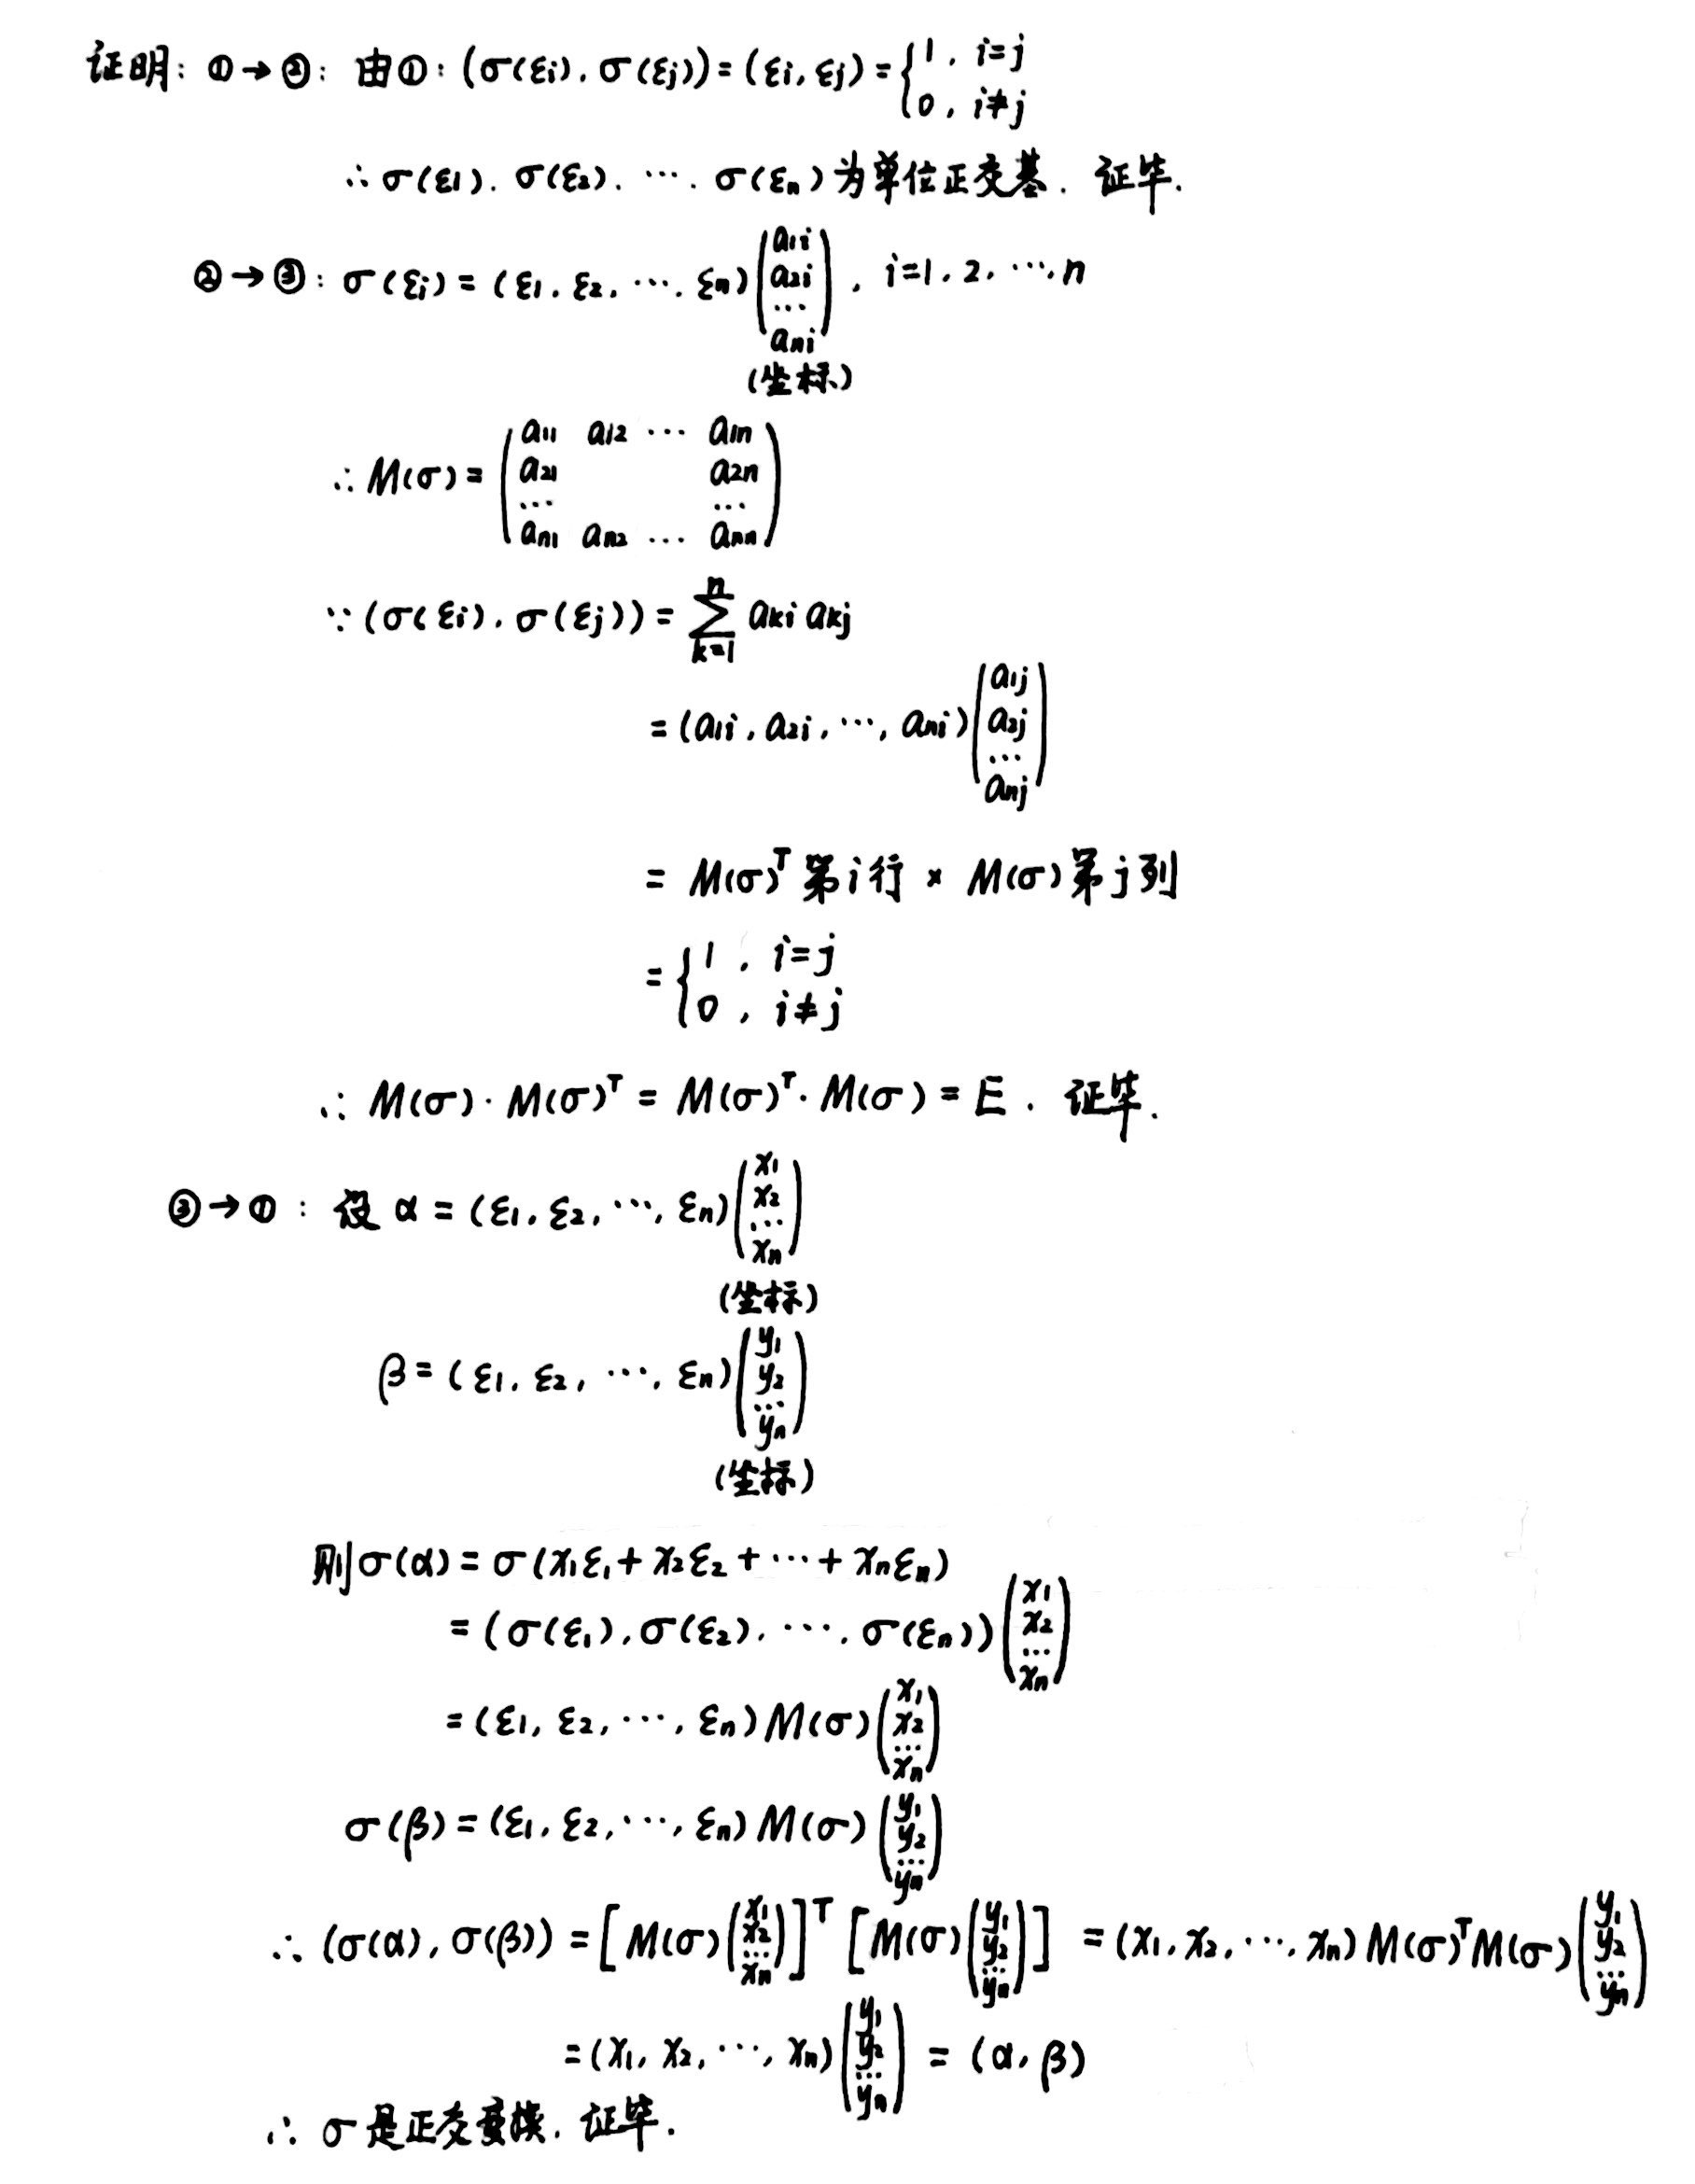 证明: ①→②: 由①: (σ(ε_i), σ(ε_j)) = (ε_i, ε_j) = { 1, i=j
0, i≠j
∴ σ(ε_1), σ(ε_2), ⋯, σ(ε_n) 为单位正交基. 证毕.
②→③: σ(ε_i) = (ε_1, ε_2, ⋯, ε_n) (a_{1i} a_{2i} ⋯ a_{ni}), i=1, 2, ⋯, n
(坐标)
∴ M(σ) = ( a_{11} a_{12} ⋯ a_{1n}
a_{21} a_{2n}
⋯ ⋯
a_{n1} a_{n2} ⋯ a_{nn} )
∵ (σ(ε_i), σ(ε_j)) = ∑_{k=1}^{n} a_{ki} a_{kj}
= (a_{1i}, a_{2i}, ⋯, a_{ni}) (a_{1j} a_{2j} ⋯ a_{nj})
= M(σ)^T 第i行 × M(σ) 第j列
= { 1, i=j
0, i≠j
∴ M(σ)·M(σ)^T = M(σ)^T·M(σ) = E. 证毕.
③→①: 设 α = (ε_1, ε_2, ⋯, ε_n) (x_1 x_2 ⋯ x_n)
(坐标)
β = (ε_1, ε_2, ⋯, ε_n) (y_1 y_2 ⋯ y_n)
(坐标)
则 σ(α) = σ(x_1ε_1 + x_2ε_2 + ⋯ + x_nε_n)
= (σ(ε_1), σ(ε_2), ⋯, σ(ε_n)) (x_1 x_2 ⋯ x_n)
= (ε_1, ε_2, ⋯, ε_n) M(σ) (x_1 x_2 ⋯ x_n)
σ(β) = (ε_1, ε_2, ⋯, ε_n) M(σ) (y_1 y_2 ⋯ y_n)
∴ (σ(α), σ(β)) = [M(σ) (x_1 x_2 ⋯ x_n)]^T [M(σ) (y_1 y_2 ⋯ y_n)] = (x_1, x_2, ⋯, x_n) M(σ)^T M(σ) (y_1 y_2 ⋯ y_n)
= (x_1, x_2, ⋯, x_n) (y_1 y_2 ⋯ y_n) = (α, β)
∴ σ 是正交变换. 证毕.